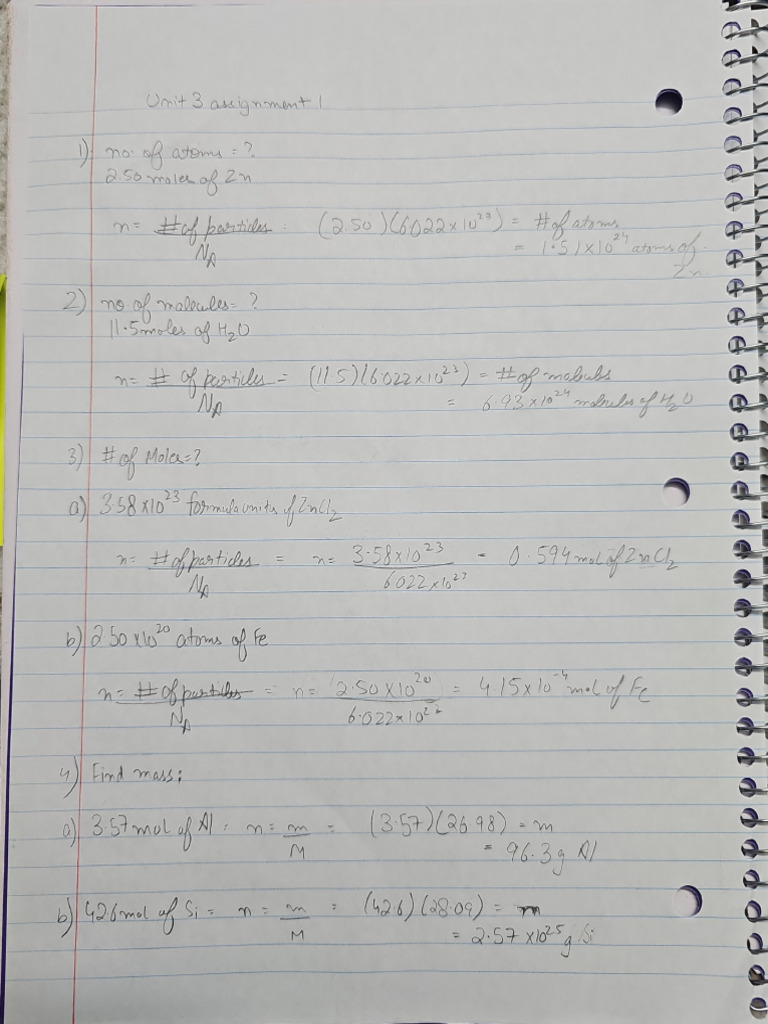 Unit 3 assignment 1
1) no. of atoms = ?
2.50 moles of Zn
n = # of particles = (2.50)(6.022 x 10²³) = # of atoms
NA = 1.51 x 10²⁴ atoms of Zn
2) no of molecules = ?
11.5 moles of H₂O
n = # of particles = (11.5)(6.022 x 10²³) = # of
NA = 6.93 x 10²⁴ molecules of H₂O
3) # of Moles = ?
a) 3.58 x 10²³ formula units of ZnCl₂
n = # of particles = n = 3.58 x 10²³ = 0.594 mol of ZnCl₂
NA 6.022 x 10²³
b) 2.50 x 10²⁰ atoms of Fe
n = # of particles = n = 2.50 x 10²⁰ = 4.15 x 10⁻⁴ mol of Fe
NA 6.022 x 10²³
4) Find mass:
a) 3.57 mol of Al = n = m = (3.57)(26.98) = m
M = 96.3 g Al
b) 42.6 mol of Si = n = m = (42.6)(28.09) = m
M = 2.57 x 10²⁵ g Si